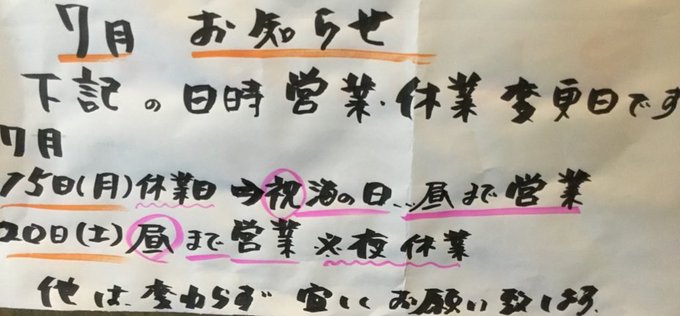 7月 お知らせ
下記の日時営業・休業変更日です
7月
15日(月)休業日⇒祝海の日…昼まで営業
20日(土)昼まで営業※夜休業
他は変わらず宜しくお願い致します.